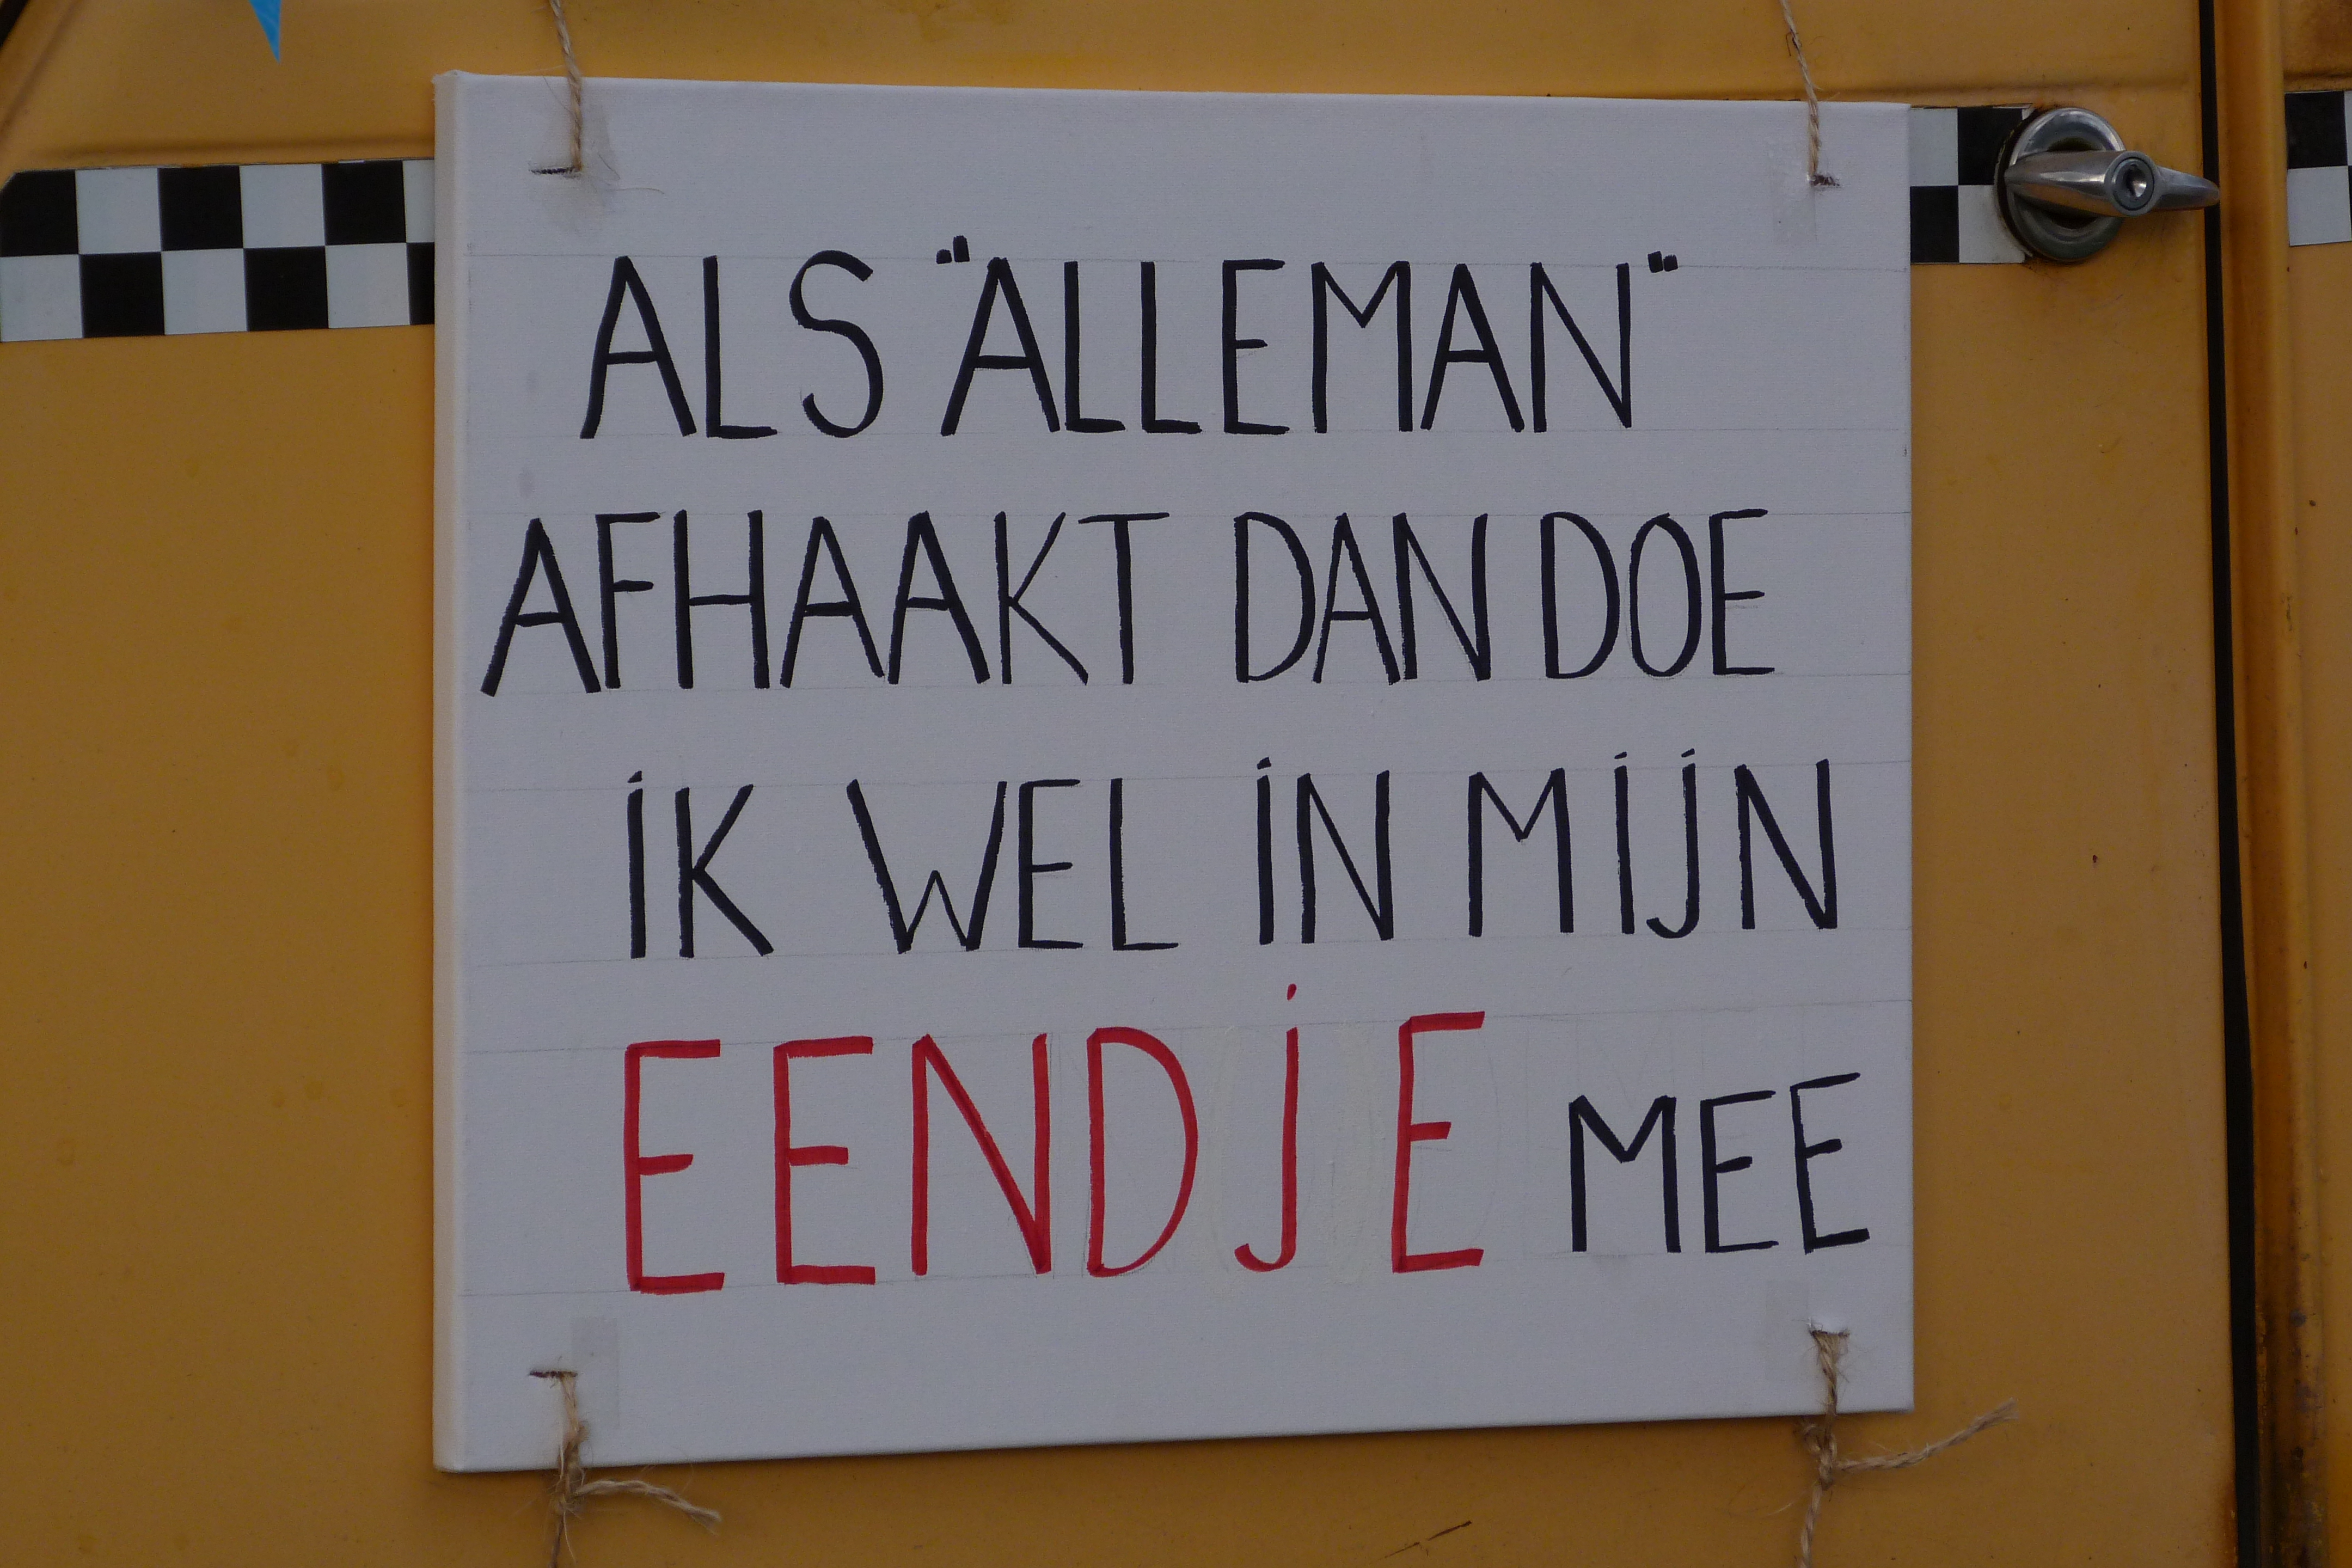 ALS "ALLEMAN"
AFHAAKT DAN DOE
iK WEL iN MijN
EENDjE MEE